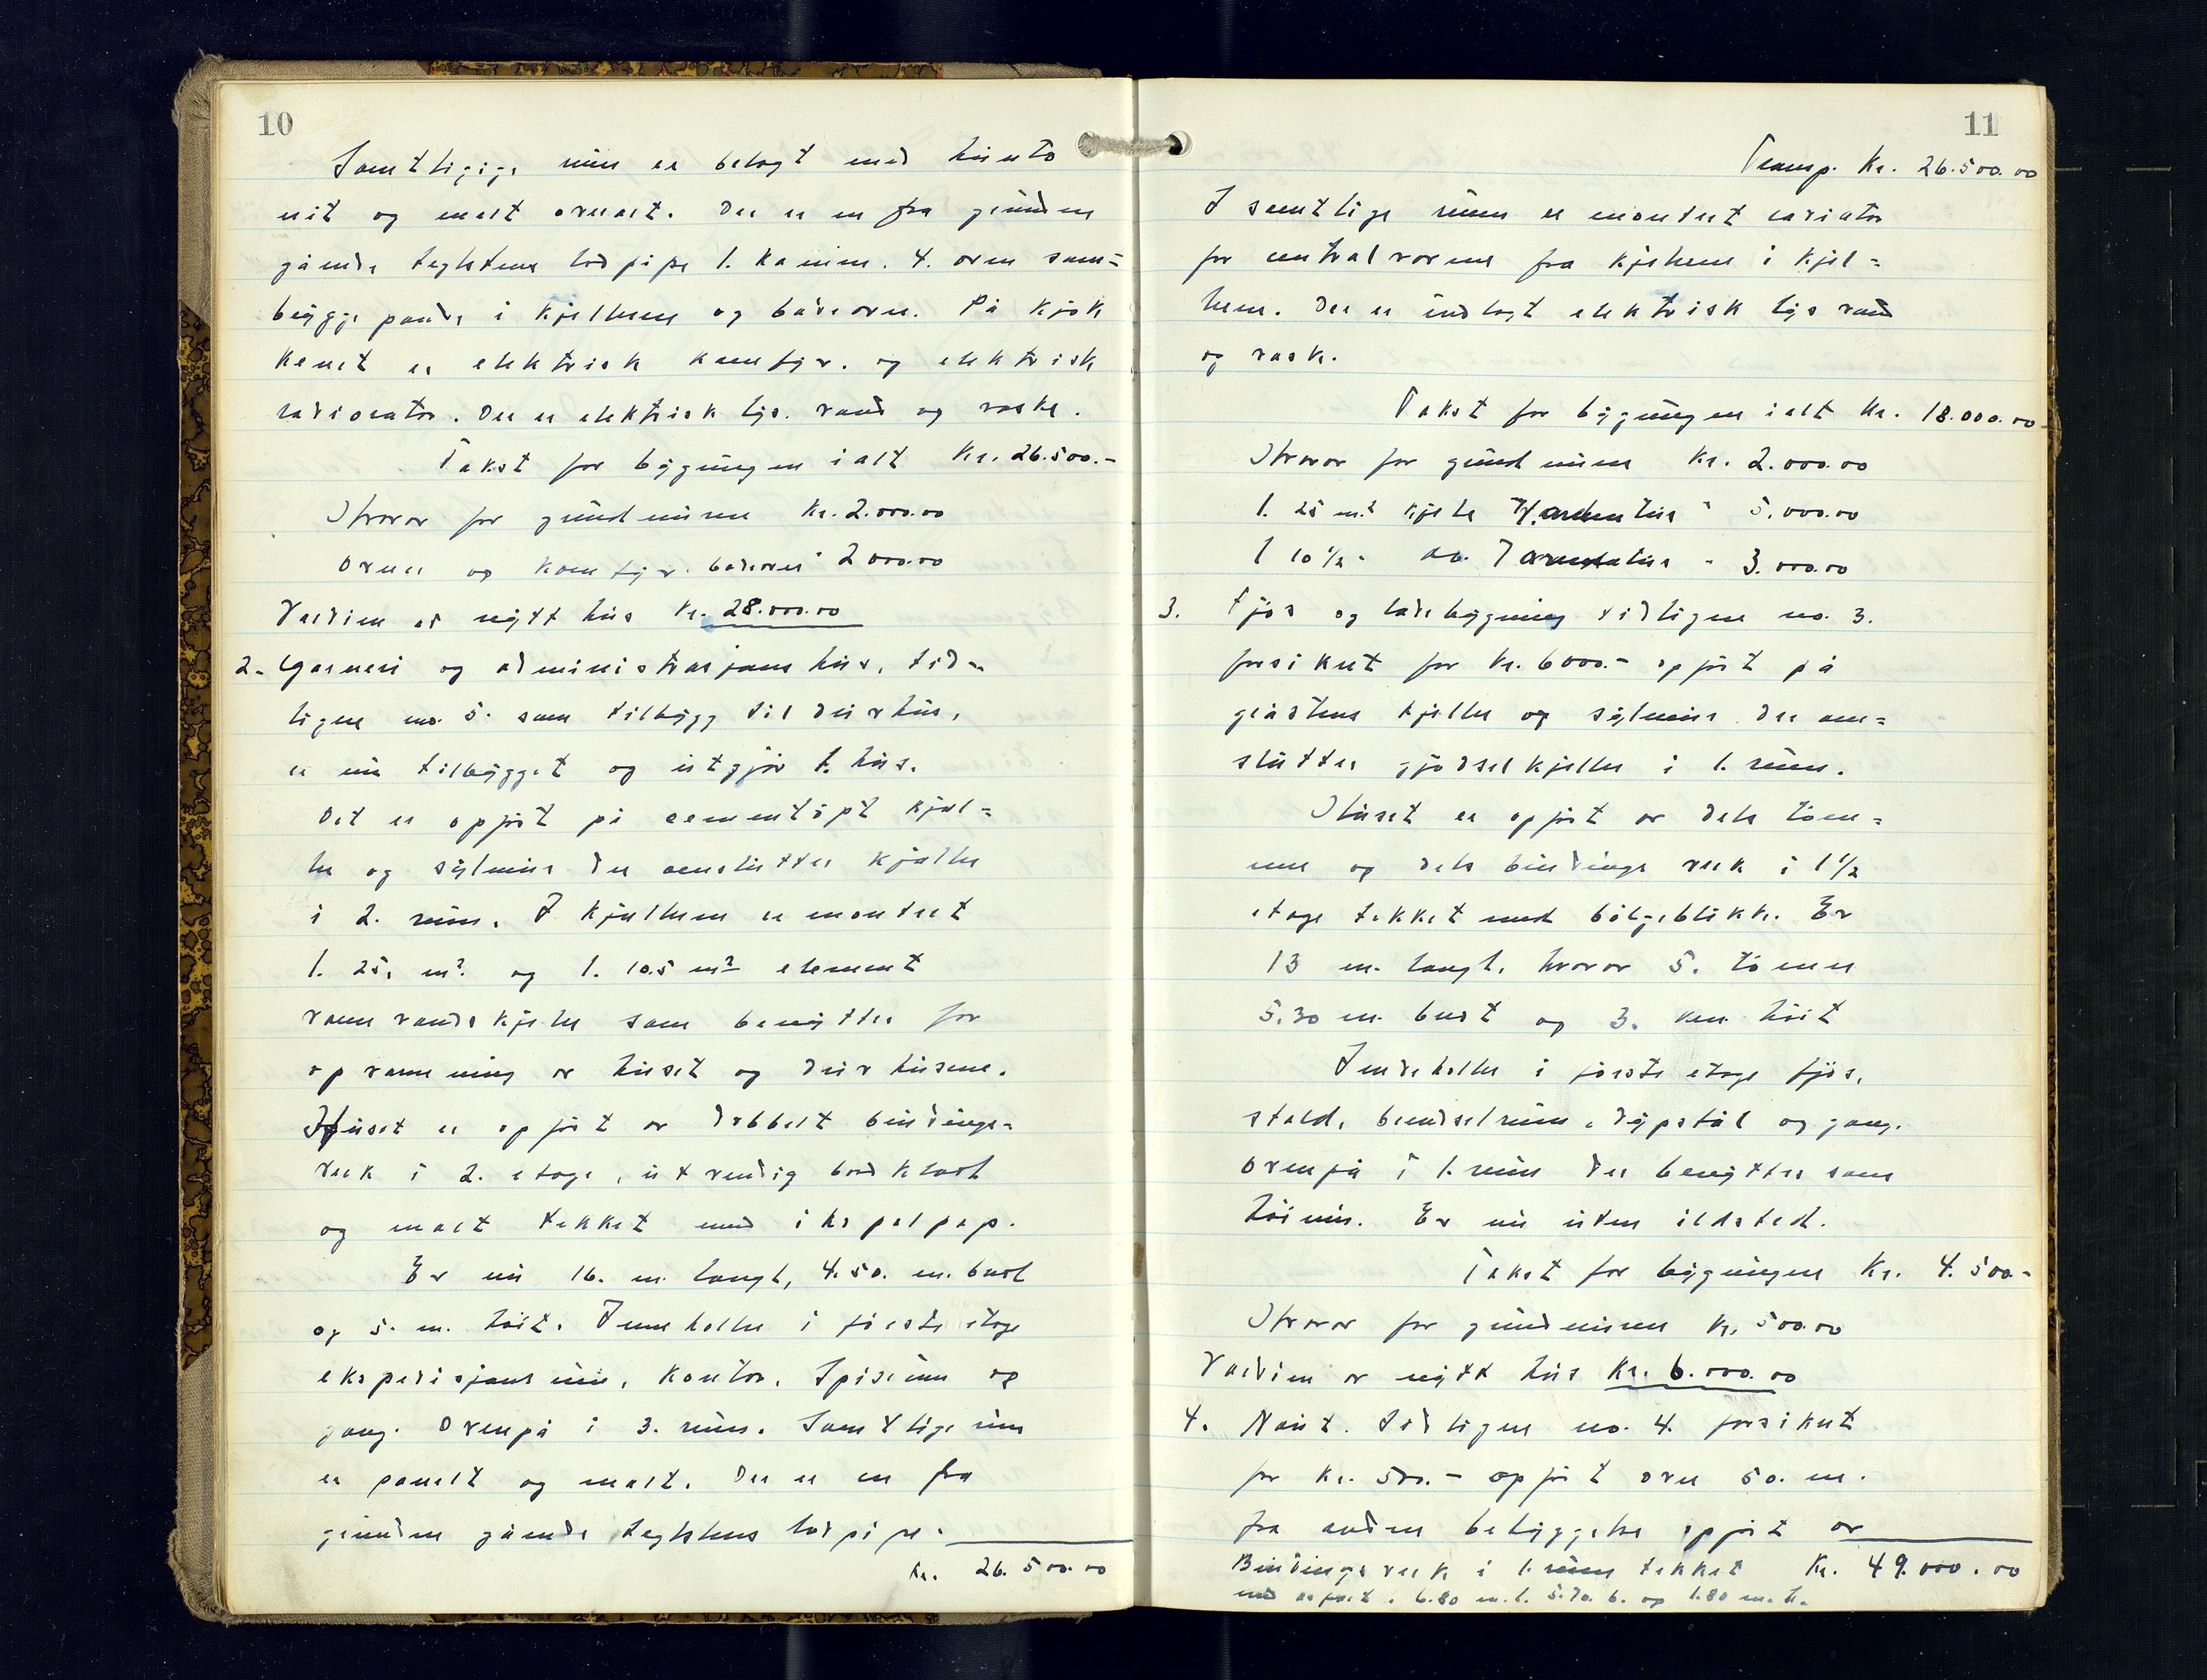 10
Samtligige rum er belagt med hunto
nit og malt overalt. Der er en fra grunden
gående teglstens lodpipe 1. kamin. 4. oven sam=
bygge pande i kjelleren og badeoven. På kjøk
kenet er elektrisk komfyr. og elektrisk
radioator. Der er elektrisk lys. vand og vaske.
Takst for bygningen ialt Kr. 26.500.-
Hvorav for grundmuren Kr. 2.000.00
ovner og komfyr. badeovn " 2000.00
Verdien av nytt hus Kr. 28.000.00
2. Garneri og administrasjons hus, tid-
ligere no. 5. som tilbygg til drivhus,
er nu tilbygget og utgjør 1. hus.
Det er opført på cementstøpt kjel=
ler og sylmur der omslutter kjeller
i 2. rum. I kjelleren er montert
1. 25. m². og 1. 10.5 m² element
varmvandskjeler som benyttes for
opvarmning av huset og drivhusene.
Huset er opført av dobbelt bindings-
verk i 2. etage, utvendig bordklædt
og malt tekket med ikopalpap.
Er nu 16. m. langt, 4.50. m. bredt
og 5. m. høit. Inneholder i første etage
ekspedisjons rum, kontor, Spiserum og
gang. Ovenpå i 3. rum. Samtlige rum
er panelt og malt. Der er en fra
grunden gående teglstens lodpipe.
Kr. 26.500.00
11
Transp. Kr. 26.500.00
I samtlige rum er montert radiator
for centralvarme fra kjelene i kjel=
leren. Der er indlagt elektrisk lys vand
og vask.
Takst for bygningen ialt Kr. 18.000.00
Hvorav for grundmuren Kr. 2.000.00
1. 25 m.² kjele " 5.000.00
1 10½ " do. " 3.000.00
3. Fjøs og ladebygning tidligere no. 3.
forsikret for Kr. 6000.- opført på
gråstens kjeller og sylmur der om=
slutter gjødselkjeller i 1. rum.
Huset er opført av dels tøm=
mer og dels bindings verk i 1½
etage tekket med bølgeblikk. Er
13 m. langt, hvorav 5. tømmer
5.30 m. bredt og 3. m. høit
Indeholder i første etage fjøs,
stald, brendselrum, dypstal og gang.
Ovenpå i 1. rum der benyttes som
høirum. Er nu uten ildsted.
Takst for bygningen Kr. 4.500.-
Hvorav for grundmuren Kr. 500.00
Verdien av nytt hus Kr. 6.000.00
4. Naust. Tidligere no. 4. forsikret
for Kr. 500.- opført over 50. m.
fra anden bebyggelse opført av
Bindingsverk i 1. rum tekket Kr. 49.000.00
med 6.80 m. l. 5.70. b. og 1.80 m. h.